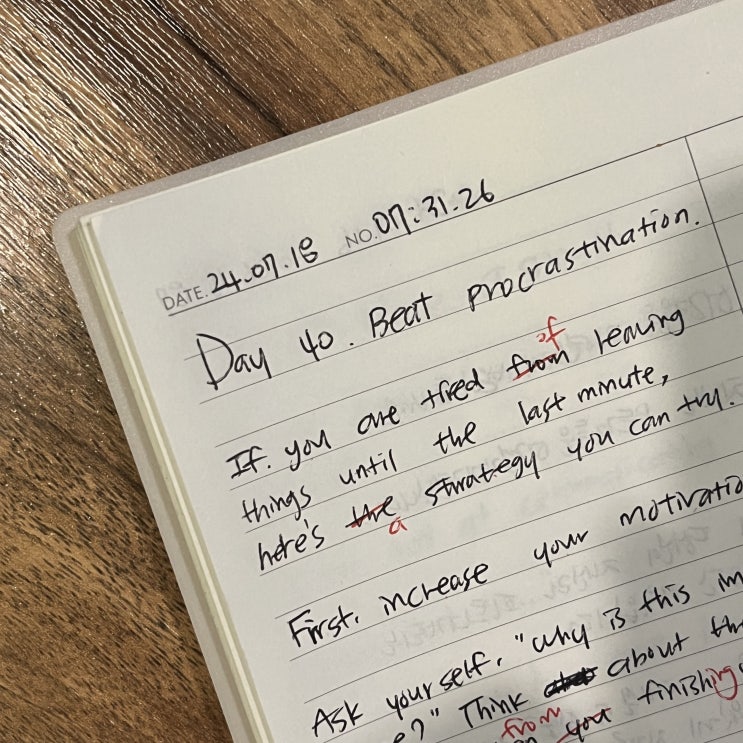 DATE. 24.07.18 NO. 07:31.26
Day 40. Beat procrastination.
of
If. you are tired from leaving
things until the last minute,
here's the strategy you can try.
a
First. increase your motivatio
Ask your self. "why is this im
e?" Think about th
from
you finishing